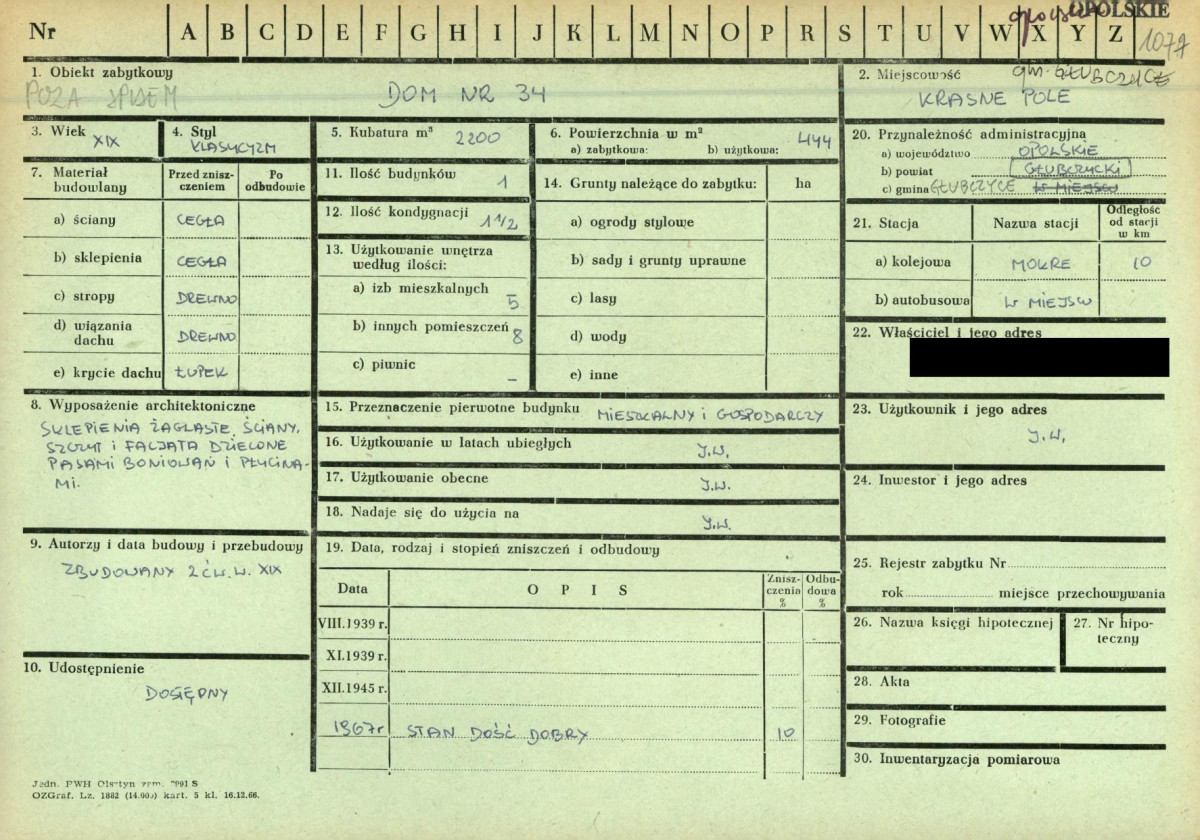 OPOLSKIE
Nr A B C D E F G H I J K L M N O P R S T U V W X Y Z
1077
1. Obiekt zabytkowy
POZA SPISEM
DOM NR 34
2. Miejscowość gm. GŁUBCZYCE
KRASNE POLE
3. Wiek
XIX
4. Styl
KLASYCYZM
5. Kubatura m³ 2200
6. Powierzchnia w m²
a) zabytkowa: b) użytkowa: 444
7. Materiał budowlany
Przed zniszczeniem
Po odbudowie
a) ściany CEGŁA
b) sklepienia CEGŁA
c) stropy DREWNO
d) wiązania dachu DREWNO
e) krycie dachu ŁUPEK
8. Wyposażenie architektoniczne
SKLEPIENIA ŻAGLASTE, ŚCIANY,
SZCZYT I FACJATA DZIELONE
PASAMI BONIOWAŃ I PŁYCINA-
MI.
9. Autorzy i data budowy i przebudowy
ZBUDOWANY 2 ĆW. W. XIX
10. Udostępnienie
DOSTĘPNY
11. Ilość budynków 1
12. Ilość kondygnacji 1 1/2
13. Użytkowanie wnętrza
według ilości:
a) izb mieszkalnych 5
b) innych pomieszczeń 8
c) piwnic –
14. Grunty należące do zabytku: ha
a) ogrody stylowe
b) sady i grunty uprawne
c) lasy
d) wody
e) inne
15. Przeznaczenie pierwotne budynku MIESZKALNY I GOSPODARCZY
16. Użytkowanie w latach ubiegłych J.W.
17. Użytkowanie obecne J.W.
18. Nadaje się do użycia na J.W.
19. Data, rodzaj i stopień zniszczeń i odbudowy
Data
O P I S
Znisz-
czenia
%
Odbu-
dowa
%
VIII.1939 r.
XI.1939 r.
XII.1945 r.
1967r STAN DOŚĆ DOBRY 10
20. Przynależność administracyjna
a) województwo OPOLSKIE
b) powiat GŁUBCZYCKI
c) gmina GŁUBCZYCE W MIEJSCU
21. Stacja
Nazwa stacji
Odległość
od stacji
w km
a) kolejowa MOKRE 10
b) autobusowa W MIEJSCU
22. Właściciel i jego adres
23. Użytkownik i jego adres
J.W.
24. Inwestor i jego adres
25. Rejestr zabytku Nr
rok miejsce przechowywania
26. Nazwa księgi hipotecznej
27. Nr hipo-
teczny
28. Akta
29. Fotografie
30. Inwentaryzacja pomiarowa
Jedn. PWH Olsztyn zam.
OZGraf. Lz. 1882 (14.000) kart. 5 kl. 16.12.66.